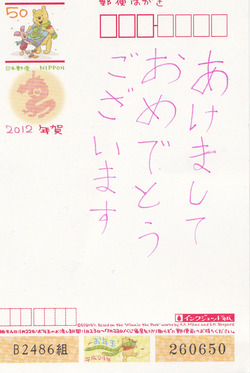 郵便はがき
50
日本郵便 NIPPON
2012 年賀
あけまして
おめでとう
ございます
インクジェット紙
お年玉
B2486組
260650